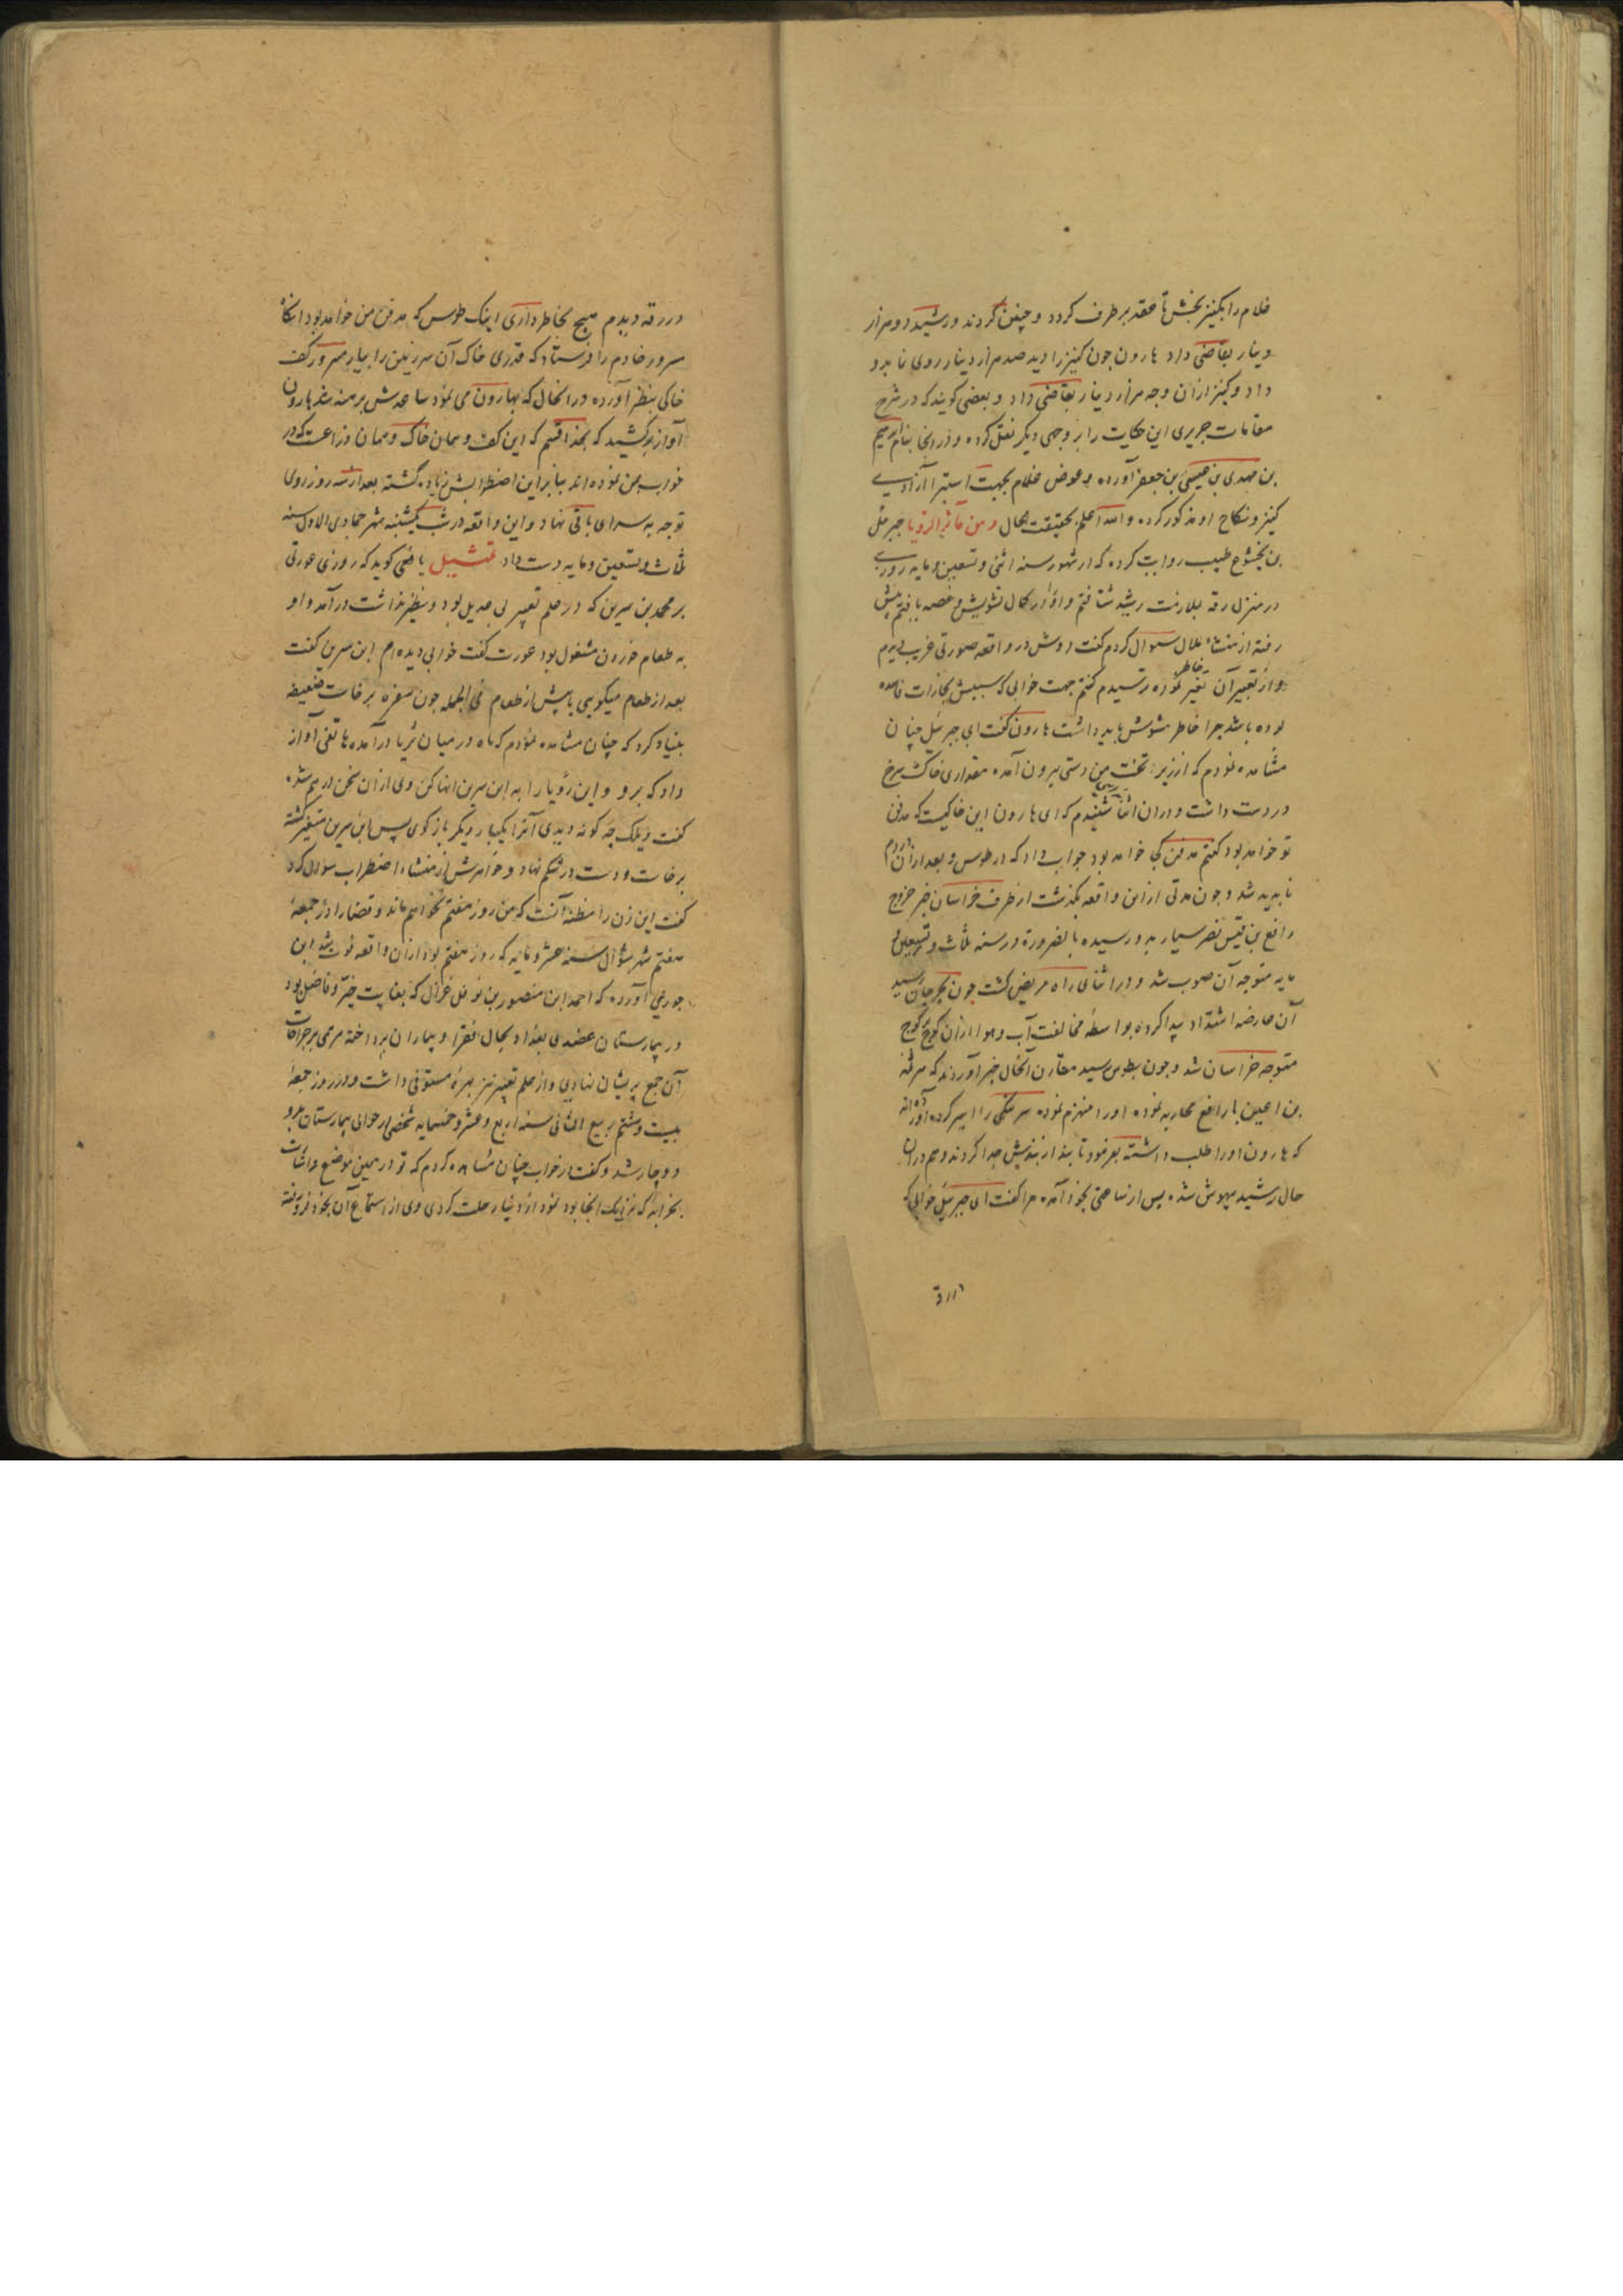 غلام را بکنیز بخش تا عقد بر طرف کردد و چنین کردند و رشید دو هزار
دینار بقاضی داد هارون چون کنیز را دید صد هزار دینار روی نما بدو
داد و کنیز ازان وجه هزار دینار بقاضی داد و بعضی کویند که در شرح
مقامات حریری این حکایت را بر وجهی دیکر نقل کرده و در انجا بنام ابرهیم
بن مهدی بن عیسی بن جعفر آورده و عوض غلام بجهت استبرا آزادیی
کنیز و نکاح او مذکور کرده و الله اعلم بحقیقت الحال و من مآثر الرویا جبرئل
بن بختشوع طبیب روایت کرده که از شهور سنه اثنی و تسعین و مایه روزیی
در منزل رقه بملازمت رشید شتافتم و او را در کمال تشویش و غصه یافتم پیش
رفته از منشاء ملال سوال کردم کفت دوش در واقعه صورتی غریب دیدم
و از تعبیر آن تغیر خاطر نموده ترسیدم کفتم جهت خوابی که سببش بخارات فاسده
بوده باشد چرا خاطر مشوش باید داشت هارون کفت ای جبرئل چنان
مشاهده نمودم که از زیر تخت من دستی بیرون آمده مقداری خاک سرخ
در دست داشت و دران اثنا شنیدم که ای هارون این خاکیست که مدفن
تو خواهد بود کفتم مدفن کجا خواهد بود جواب داد که در طوس و بعد ازان
ناپدید شد و چون مدتی از این واقعه بکذشت از طرف خراسان خبر خروج
رافع بن نصر سیار بدو رسیده بالضرورة در سنه ثلث و تسعین و
مایه متوجه آن صوب شد و در اثنای راه مریض کشت چون بجرجان رسید
آن عارضه اشتداد پیدا کرده بواسطه مخالفت آب و هوا ازان کوچ بر کوچ
متوجه خراسان شد و چون بطوس رسید مقارن آنحال خبر آوردند که هرثمه
بن اعین با رافع محاربه نموده او را منهزم نموده سرهنکی را اسیر کرده آورده اند
که هارون او را طلب داشته بفرمود تا بند از بندش جدا کردند و هم دران
حال رشید بیهوش شده پس از ساعتی بخود آمده مرا کفت ای جبرئیل خوابی که
در رقه
در رقه دیدم هیچ بخاطر داری اینک طوس که مدفن من خواهد بود انکاه
مسرور خادم را فرستاد که قدری خاک آن سرزمین را بیار مسرور کف
خاکی بنظر آورده در انحال که بهارون می نمود ساعدش برهنه شد هارون
آواز برکشید که بخدا قسم که این کف و همان خاک و همان ذراعست که در
خواب بمن نموده اند بنابر این اضطرابش زیاده کشته بعد از سه روز روی
توجه به سرای باقی نهاد و این واقعه در شب یکشنبه شهر جمادی الاول سنه
ثلث و تسعین و مایه دست داد تمثیل یافعی کوید که روزی عورتی
بر محمد بن سیرین که در علم تعبیر بی عدیل بود و نظیر نداشت در آمد و او
به طعام خوردن مشغول بود عورت کفت خوابی دیده ام ابن سیرین کفت
بعد از طعام میکویی یا پیش از طعام فی الجمله چون سفره برخاست ضعیفه
بنیاد کرد که چنان مشاهده نمودم که ماه در میان ثریا در آمده هاتفی آواز
داد که برو و این رؤیا را به ابن سیرین انها کن وی از ان سخن درهم شده
کفت ویلک چه کونه دیدی آنرا یکبار دیکر باز کوی پس ابن سیرین متغیر کشته
برخاست و دست در شکم نهاد و خواهرش از منشاء اضطراب سوال کرد
کفت این زن را مظنه آنست که من روز هفتم نخواهم ماند و قضا را در جمعه
هفتم شهر شوال سنه عشر و مایه که روز هفتم بود ازان واقعه فوت شد ابن
جوزی آورده که احمد ابن منصور بن نوفل غزال که بغایت خیر و فاضل بود
در بیمارستان عضدی بغداد بحال فقرا و بیماران پرداخته مرهمی بر جراحات
آن جمع پریشان نهادی و از علم تعبیر نیز بهره مستوفی داشت و در روز جمعه
بیست و هشتم ربیع الثانی سنه اربع و عشر و خمسمایه شخصی از حوالی بیمارستان برو
دوچار شد و کفت در خواب چنان مشاهده کردم که تو در همین موضع
بخرابه که نزدیک انجا بود از دنیا رحلت کردی وی از استماع آن بخود فرو رفته